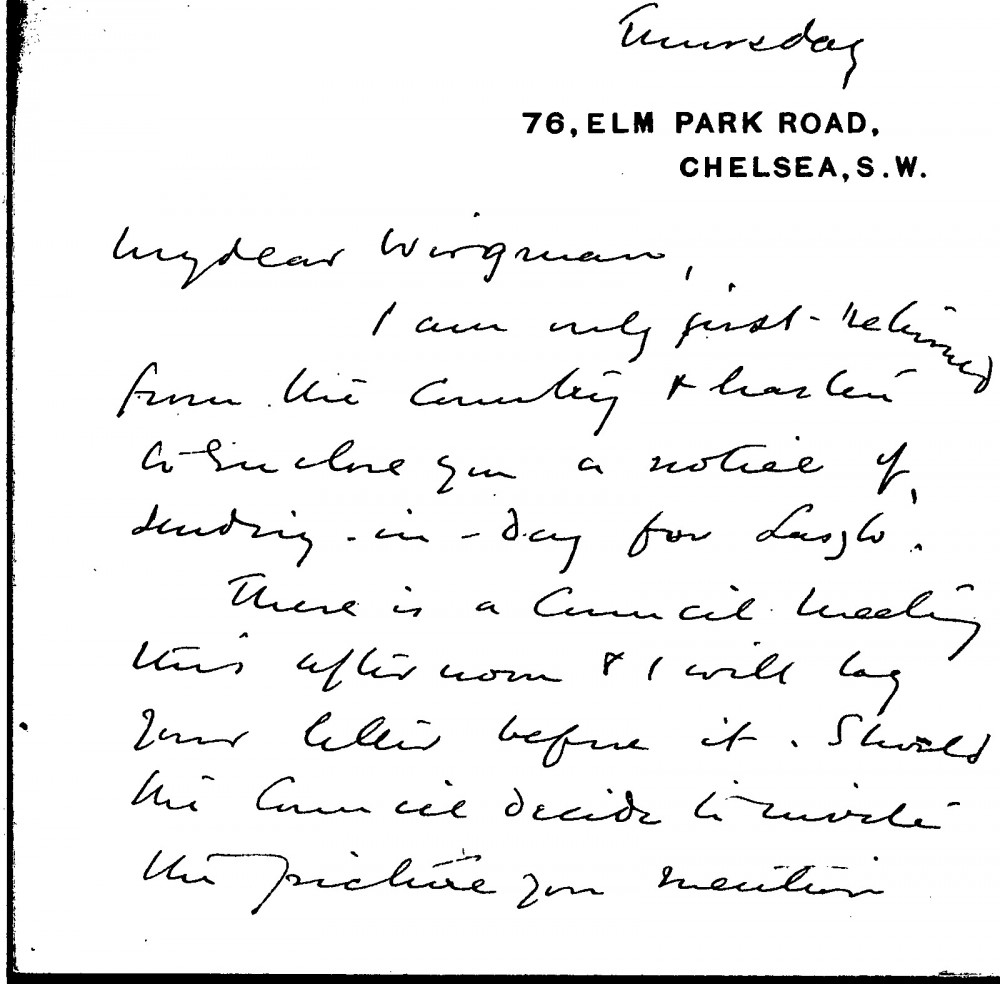 Thursday
76, ELM PARK ROAD,
CHELSEA, S.W.
My dear Wirgman,
I am only just returned
from the Country & hasten
to enclose you a notice of
sending-in-day for Laszlo.
There is a Council meeting
this afternoon & I will lay
your letter before it. Should
the Council decide to invite
the picture you mention